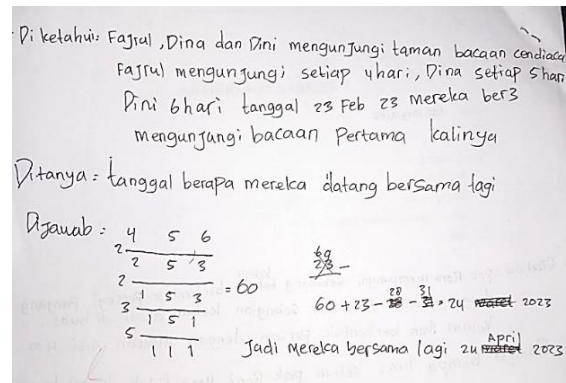 Diketahui: Fajrul, Dina dan Dini mengunjungi taman bacaan cendiaca
Fajrul mengunjungi setiap 4hari, Dina setiap 5hari
Dini 6hari tanggal 23 Feb 23 mereka ber3
mengunjungi bacaan Pertama kalinya
Ditanya: tanggal berapa mereka datang bersama lagi
Dijawab: 4 5 6
2 2 5 3
2 1 5 3 = 60
3 1 5 1
5 1 1 1
60 + 23 - 28 - 31 = 24 maret 2023
Jadi Mereka bersama lagi 24 April maret 2023